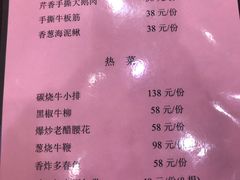 芹香手撕大鹅肉
手撕牛板筋 38 元/份
香葱海泥鳅 38 元/份
热 菜
碳烧牛小排 138 元/份
黑椒牛柳 58 元/份
爆炒老醋腰花 58 元/份
葱烧牛鞭 98 元/份
香炸多春鱼 58 元/份